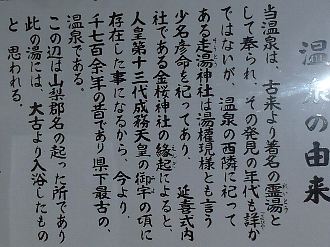 温泉の由来
当温泉は、古来より著名の霊湯と
して奉られ、その発見の年代も詳か
ではないが、温泉の西隣に祀って
ある走湯神社は湯権現様とも言う
少名彦命を祀ってあり、延喜式内
社である金桜神社の縁起によると、
人皇第十三代成務天皇の御宇の頃に
存在した事になるから、今より、
千七百余年の昔であり県下最古の、
温泉である。
この辺は山梨郡名の起った所であり
此の湯には、太古より入浴したもの
と思われる。